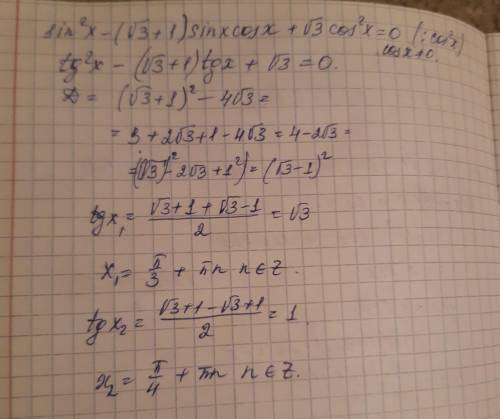 sin²x - (√3+1) sinx cosx + √3 cos²x = 0 (: cos²x)
cosx ≠ 0.
tg²x - (√3+1) tgx + √3 = 0.
D = (√3+1)² - 4√3 =
= 3 + 2√3 + 1 - 4√3 = 4 - 2√3 =
= ((√3)² - 2√3 + 1²) = (√3-1)²
tgx₁ = (√3+1+√3-1)/2 = √3
x₁ = π/3 + πn n∈Z.
tgx₂ = (√3+1-√3+1)/2 = 1
x₂ = π/4 + πn n∈Z.